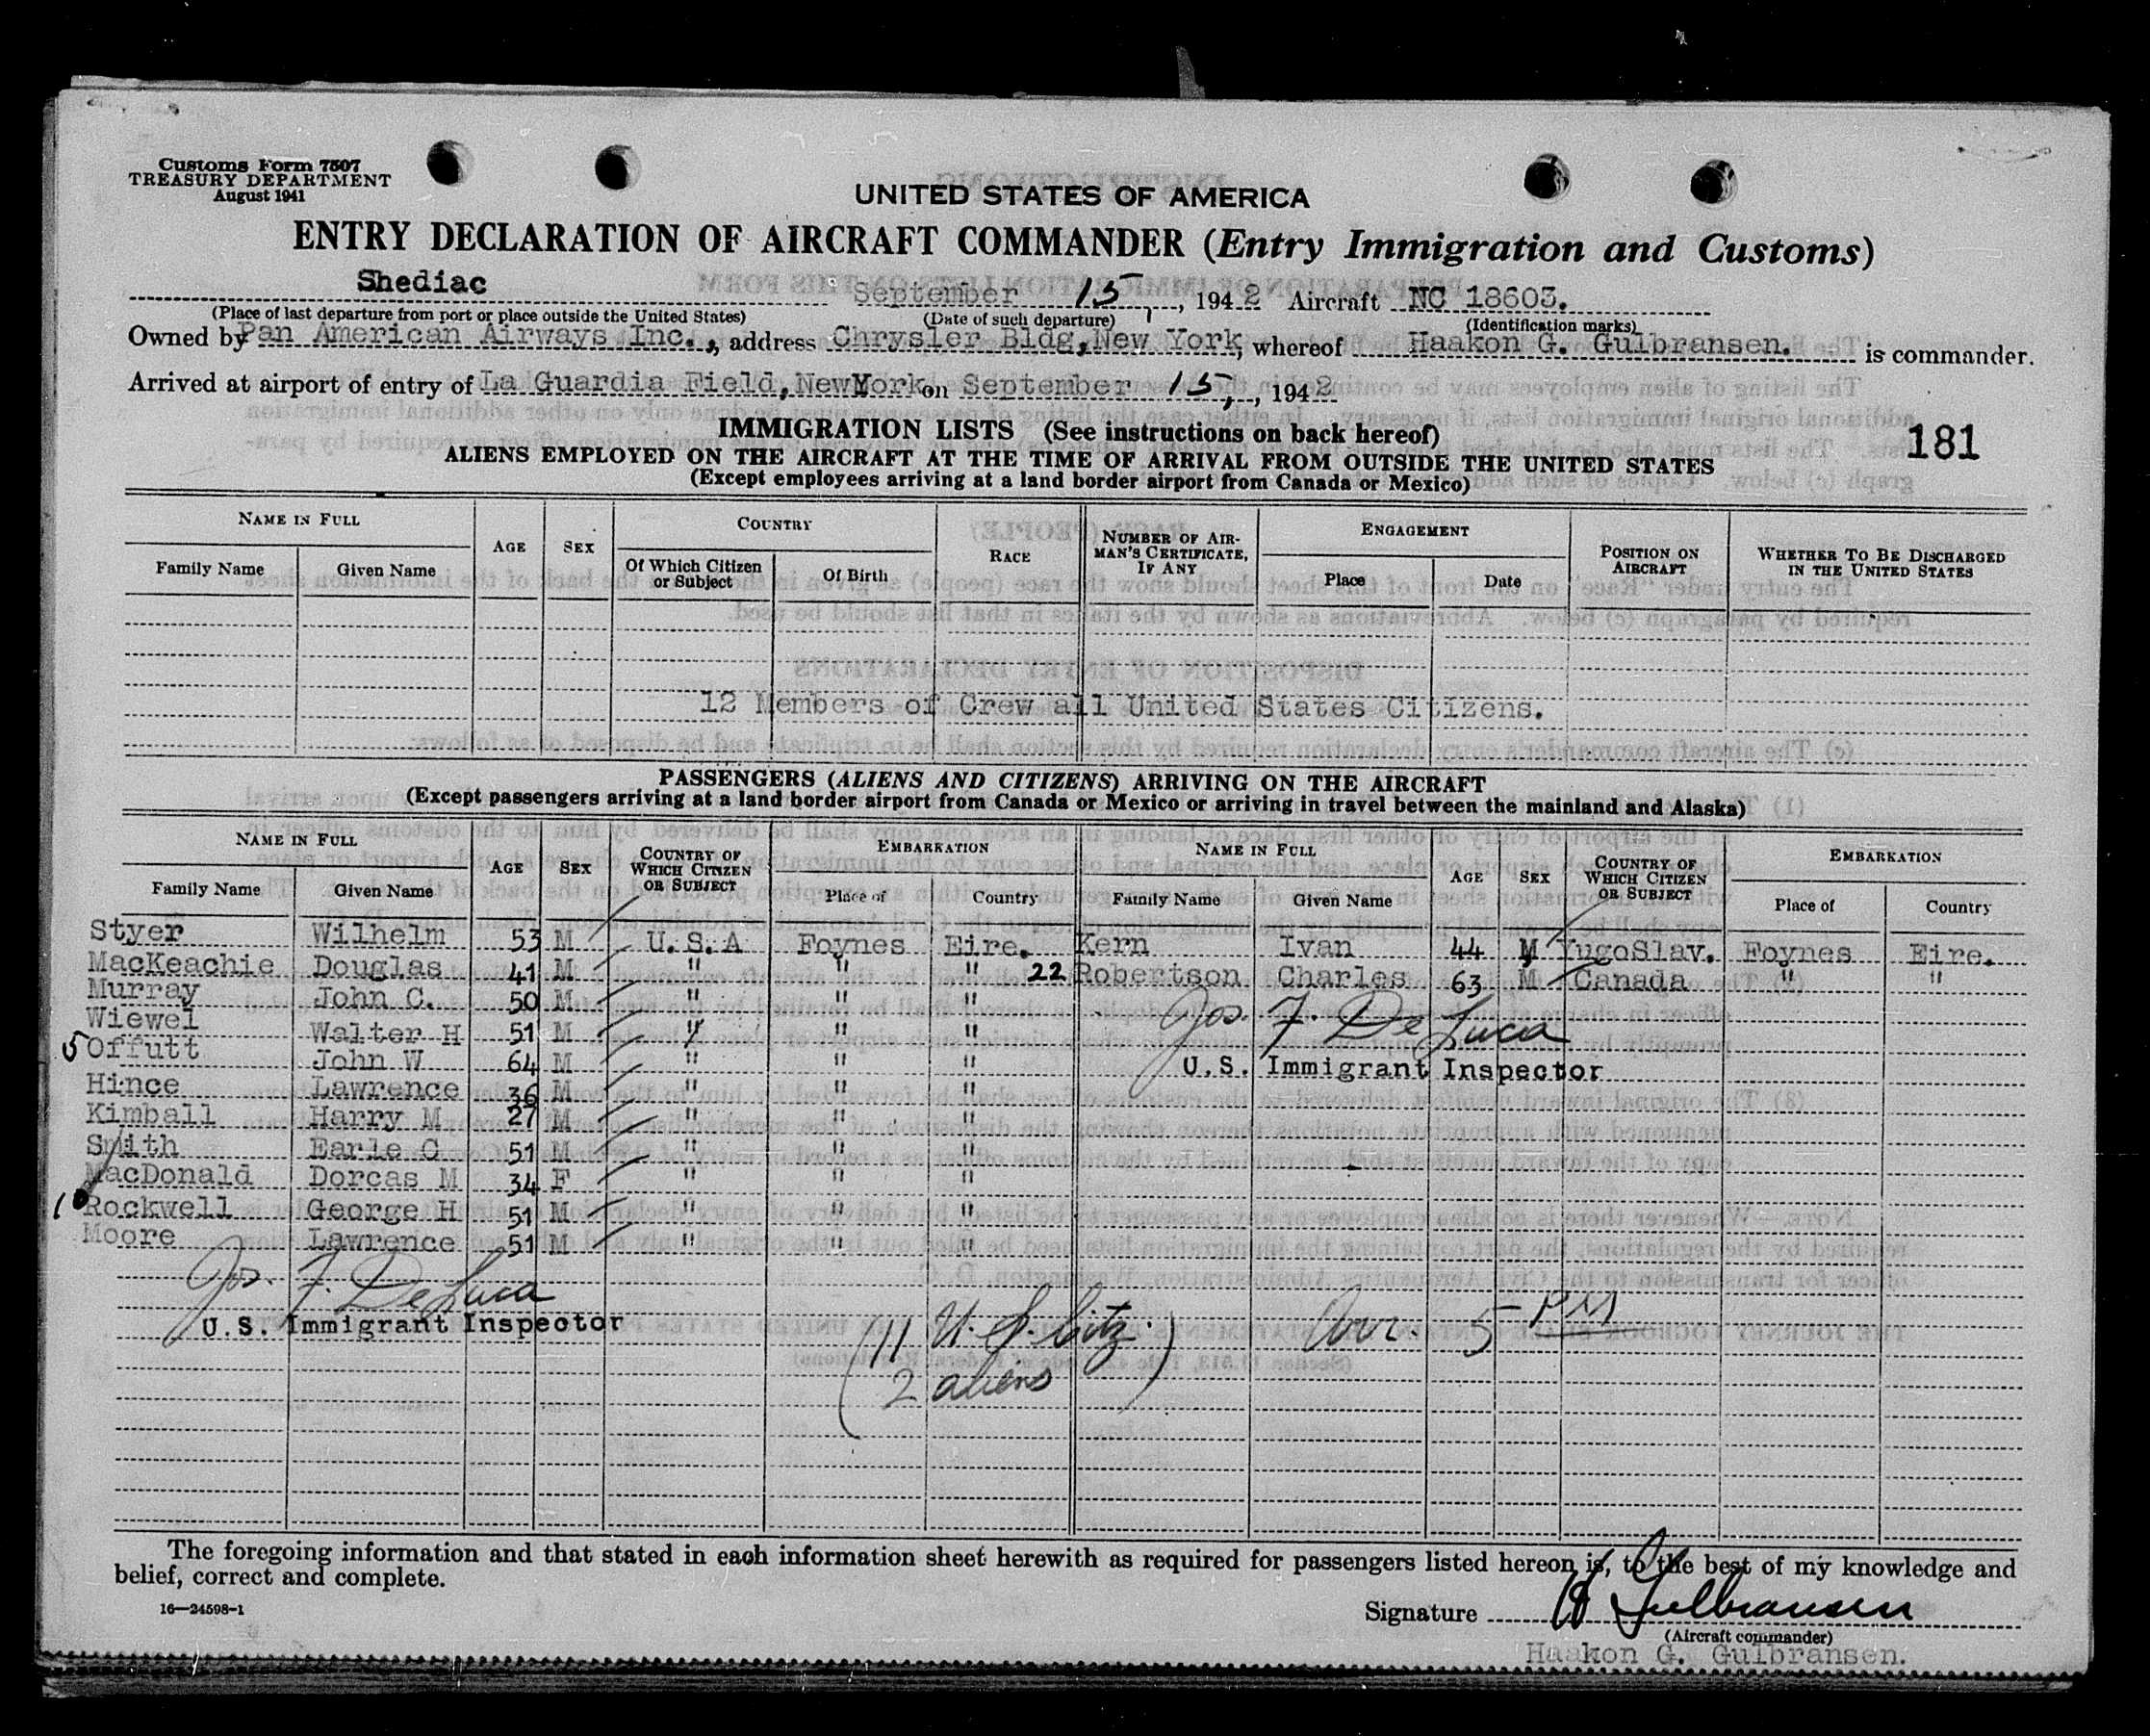 Customs Form 7507
TREASURY DEPARTMENT
August 1941
UNITED STATES OF AMERICA
ENTRY DECLARATION OF AIRCRAFT COMMANDER (Entry Immigration and Customs)
Shediac September 15, 1942 Aircraft NC 18603.
(Place of last departure from port or place outside the United States) (Date of such departure) (Identification marks)
Owned by Pan American Airways Inc., address Chrysler Bldg, New York, whereof Haakon G. Gulbransen. is commander.
Arrived at airport of entry of La Guardia Field, New York on September 15, 1942
IMMIGRATION LISTS (See instructions on back hereof)
181
ALIENS EMPLOYED ON THE AIRCRAFT AT THE TIME OF ARRIVAL FROM OUTSIDE THE UNITED STATES
(Except employees arriving at a land border airport from Canada or Mexico)
NAME IN FULL AGE SEX COUNTRY RACE NUMBER OF AIRMAN'S CERTIFICATE, IF ANY ENGAGEMENT POSITION ON AIRCRAFT WHETHER TO BE DISCHARGED IN THE UNITED STATES
Family Name Given Name Of Which Citizen or Subject Of Birth Place Date
12 Members of Crew all United States Citizens.
PASSENGERS (ALIENS AND CITIZENS) ARRIVING ON THE AIRCRAFT
(Except passengers arriving at a land border airport from Canada or Mexico or arriving in travel between the mainland and Alaska)
NAME IN FULL AGE SEX COUNTRY OF WHICH CITIZEN OR SUBJECT EMBARKATION NAME IN FULL AGE SEX COUNTRY OF WHICH CITIZEN OR SUBJECT EMBARKATION
Family Name Given Name Place of Country Family Name Given Name Place of Country
Styer Wilhelm 53 M U.S.A Foynes Eire. Kern Ivan 44 M YugoSlav. Foynes Eire.
MacKeachie Douglas 41 M " " " 22 Robertson Charles 63 M Canada " "
Murray John C. 50 M " " "
Jos. F. De Luca
Wiewel Walter H 51 M " " "
5 Offutt John W 64 M " " "
U.S. Immigrant Inspector
Hince Lawrence 36 M " " "
Kimball Harry M 27 M " " "
Smith Earle C 51 M " " "
MacDonald Dorcas M 34 F " " "
10 Rockwell George H 51 M " " "
Moore Lawrence 51 M " " "
Jos. F. De Luca
U.S. Immigrant Inspector
(11 U.S. Citz.
2 aliens)
Arr. 5 PM
The foregoing information and that stated in each information sheet herewith as required for passengers listed hereon is, to the best of my knowledge and
belief, correct and complete.
16—24598-1
Signature H G Gulbransen
(Aircraft commander)
Haakon G. Gulbransen.